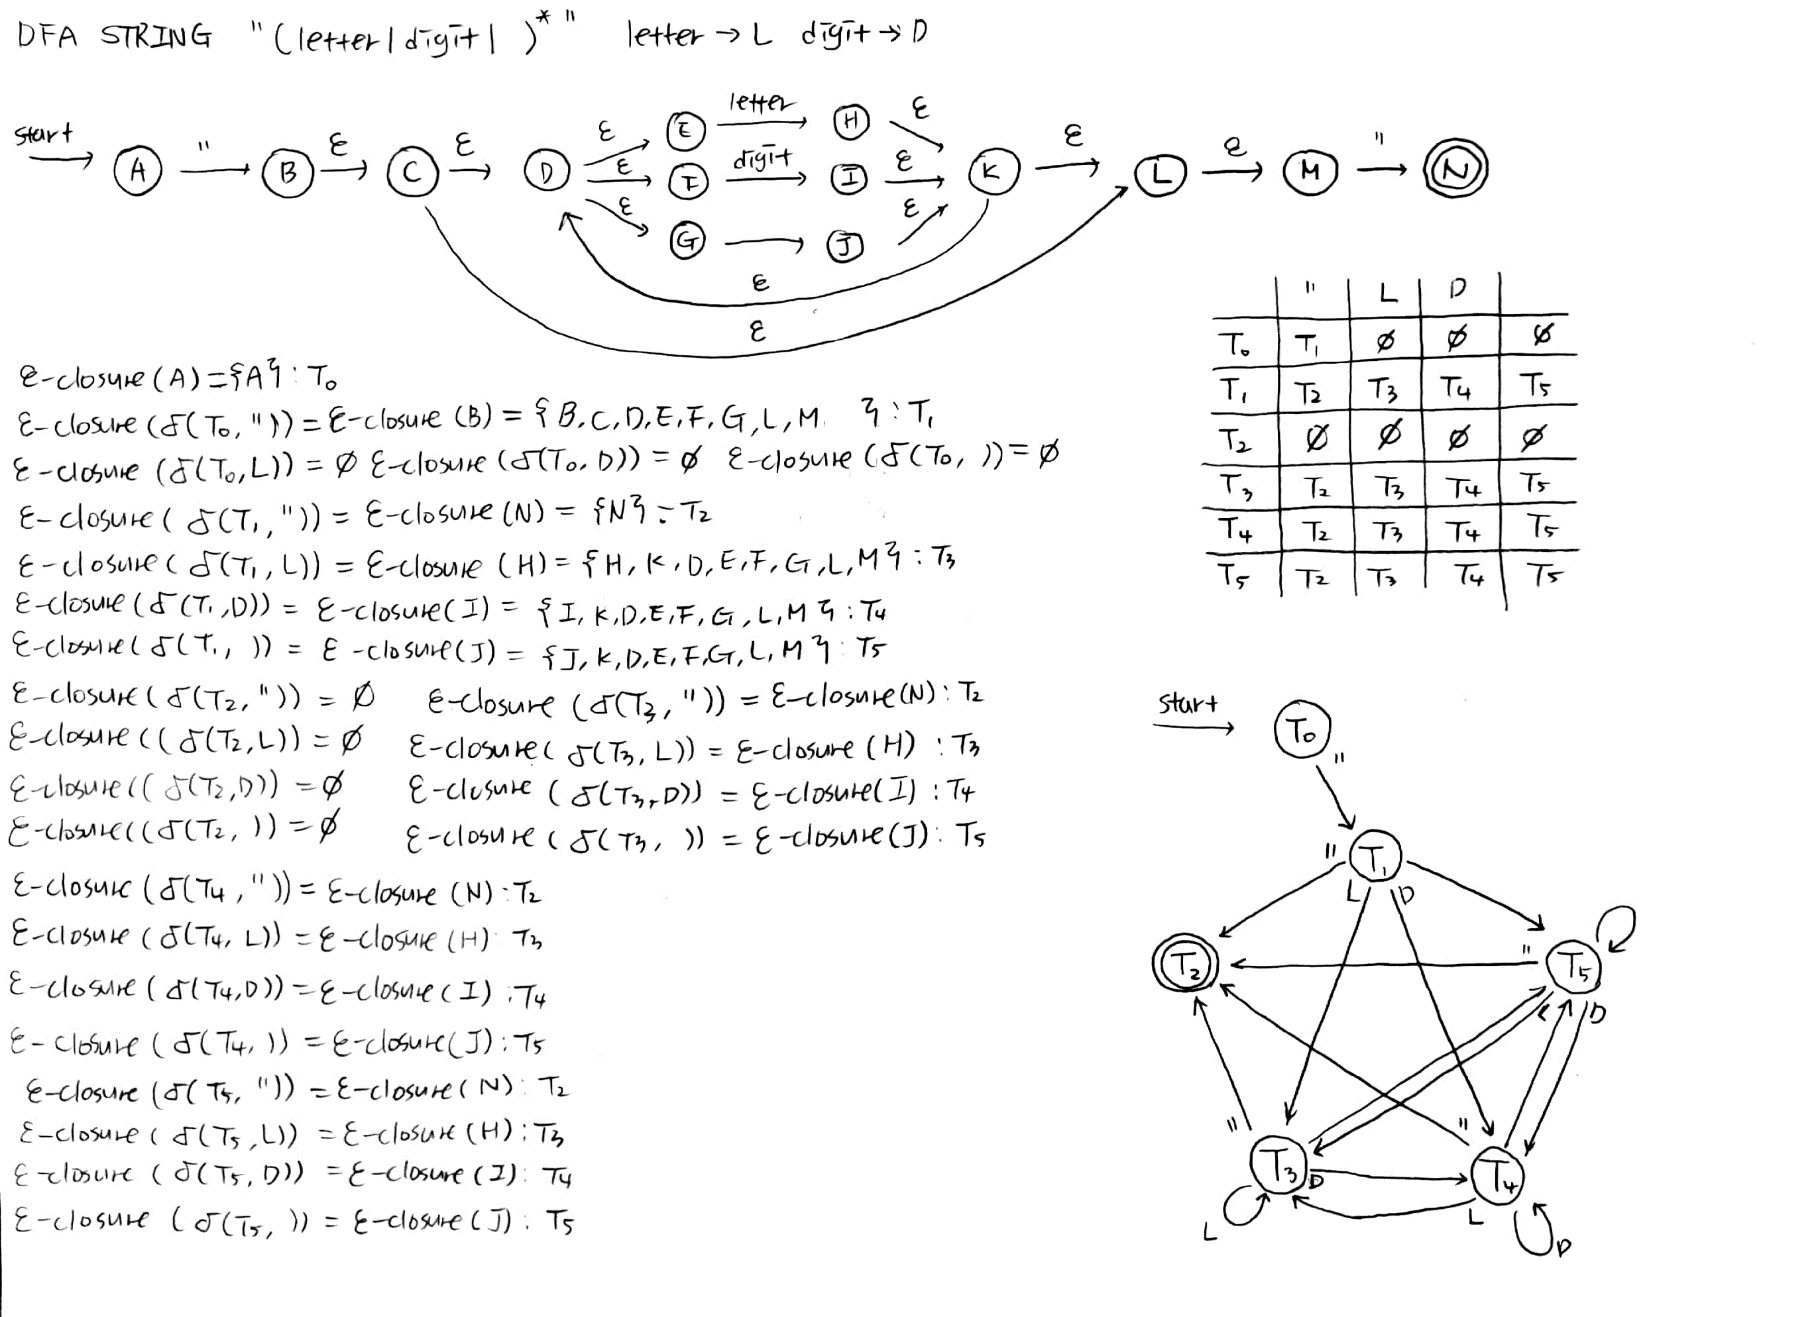 DFA STRING "(letter|digit| )*" letter → L digit → D
start
A " B ε C ε D ε E letter H ε K ε L ε M " N
ε F digit I ε
ε G J ε
ε
ε
" L D
T₀ T₁ ∅ ∅ ∅
T₁ T₂ T₃ T₄ T₅
T₂ ∅ ∅ ∅ ∅
T₃ T₂ T₃ T₄ T₅
T₄ T₂ T₃ T₄ T₅
T₅ T₂ T₃ T₄ T₅
ε-closure(A)={A}: T₀
ε-closure(δ(T₀,"))=ε-closure(B)={B,C,D,E,F,G,L,M }: T₁
ε-closure(δ(T₀,L))=∅ ε-closure(δ(T₀,D))=∅ ε-closure(δ(T₀, ))=∅
ε-closure(δ(T₁,"))=ε-closure(N)={N}: T₂
ε-closure(δ(T₁,L))=ε-closure(H)={H,K,D,E,F,G,L,M}: T₃
ε-closure(δ(T₁,D))=ε-closure(I)={I,K,D,E,F,G,L,M}: T₄
ε-closure(δ(T₁, ))=ε-closure(J)={J,K,D,E,F,G,L,M}: T₅
ε-closure(δ(T₂,"))=∅ ε-closure(δ(T₃,"))=ε-closure(N): T₂
ε-closure((δ(T₂,L))=∅ ε-closure(δ(T₃,L))=ε-closure(H): T₃
ε-closure((δ(T₂,D))=∅ ε-closure(δ(T₃,D))=ε-closure(I): T₄
ε-closure((δ(T₂, ))=∅ ε-closure(δ(T₃, ))=ε-closure(J): T₅
ε-closure(δ(T₄,"))=ε-closure(N): T₂
ε-closure(δ(T₄,L))=ε-closure(H) T₃
ε-closure(δ(T₄,D))=ε-closure(I): T₄
ε-closure(δ(T₄, ))=ε-closure(J): T₅
ε-closure(δ(T₅,"))=ε-closure(N): T₂
ε-closure(δ(T₅,L))=ε-closure(H): T₃
ε-closure(δ(T₅,D))=ε-closure(I): T₄
ε-closure(δ(T₅, ))=ε-closure(J): T₅
start
T₀
"
" T₁
L D
T₂ " T₅
L D
" "
T₃ D T₄
L L D